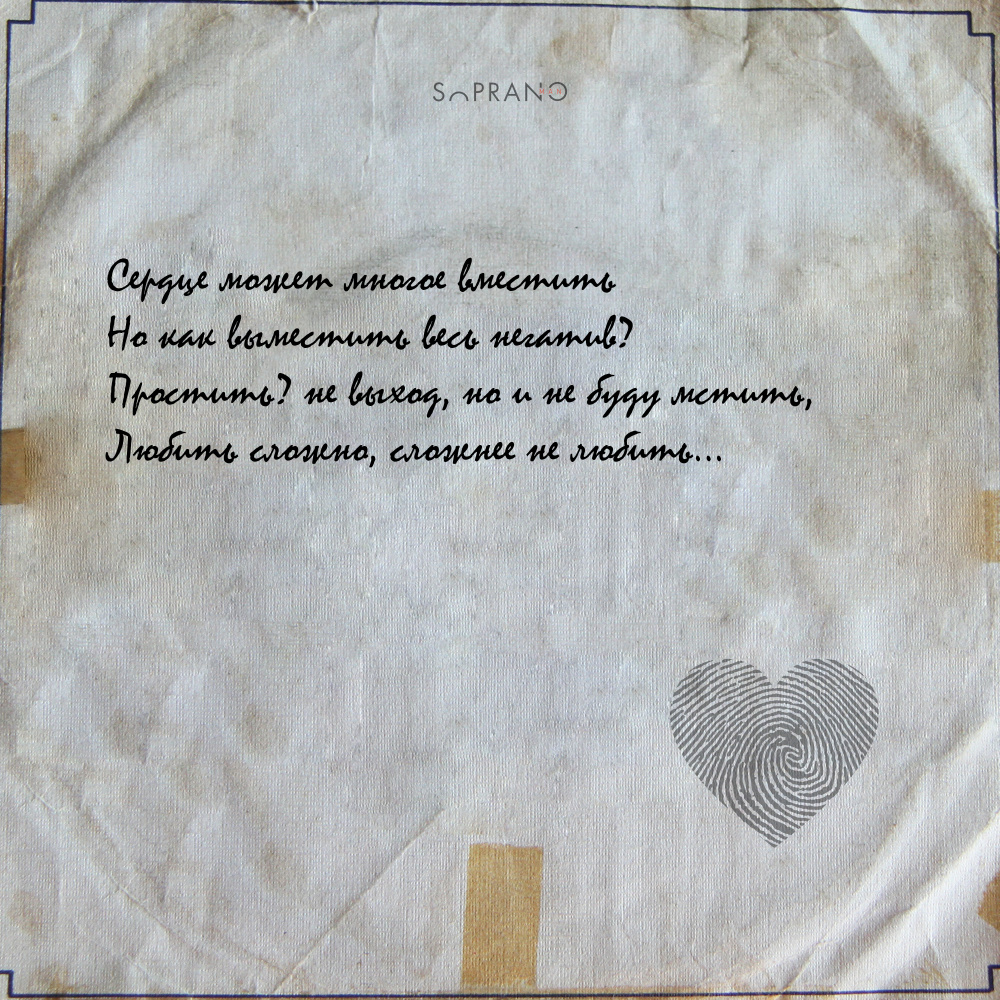 SOPRANO
Сердце может многое вместить
Но как выместить весь негатив?
Простить? не выход, но и не буду мстить,
Любить сложно, сложнее не любить...